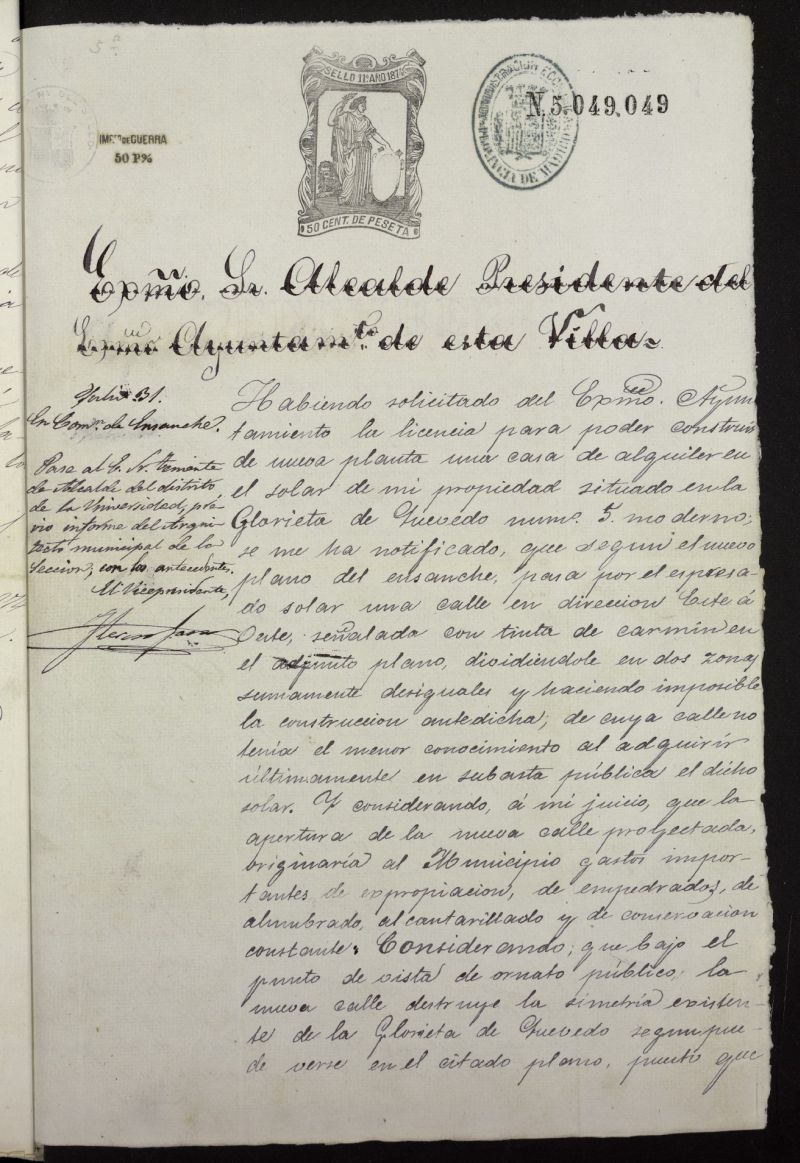 5ª
SELLO 11º AÑO 1874
50 CENT. DE PESETA
IMPTO DE GUERRA
50 P%
ADMINISTRACION ECONOMICA
PROVINCIA DE MADRID
N.5.049,049
Exmo. Sr. Alcalde Presidente del
Exmo. Ayuntamto de esta Villa=
Julio 31.
En Comon de Ensanche.
Pase al E. Sr. Teniente
de Alcalde del distrito
de la Universidad, pré-
vio informe del Arqui-
tecto municipal de la
Seccion, con los antecedentes.
El Vicepresidente,
Habiendo solicitado del Exmo. Ayun
tamiento la licencia para poder construir
de nueva planta una casa de alquiler en
el solar de mi propiedad situado en la
Glorieta de Quevedo num.º 5. moderno;
se me ha notificado, que segun el nuevo
plano del ensanche, pasa por el espresa-
do solar una calle en direcion Este á
Oeste, señalada con tinta de carmin en
el adjunto plano, dividiéndole en dos zonas
sumamente desiguales y haciendo imposible
la construccion antedicha; de cuya calle no
tenía el menor conocimiento al adquirir
últimamente en subasta pública el dicho
solar. Y considerando, á mi juicio, que la
apertura de la nueva calle proyectada,
originaría al Municipio gastos impor-
tantes de expropiacion, de empedrados, de
alumbrado, alcantarillado y de conservacion
constante: Considerando, que bajo el
punto de vista de ornato público, la
nueva calle destruye la simetría existen-
te de la Glorieta de Quevedo segun pue-
de verse en el citado plano, puesto que